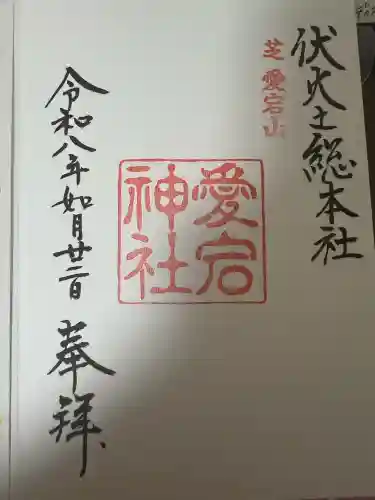 伏火之総本社
芝 愛宕山
愛宕神社
令和八年如月廿二日
奉拝